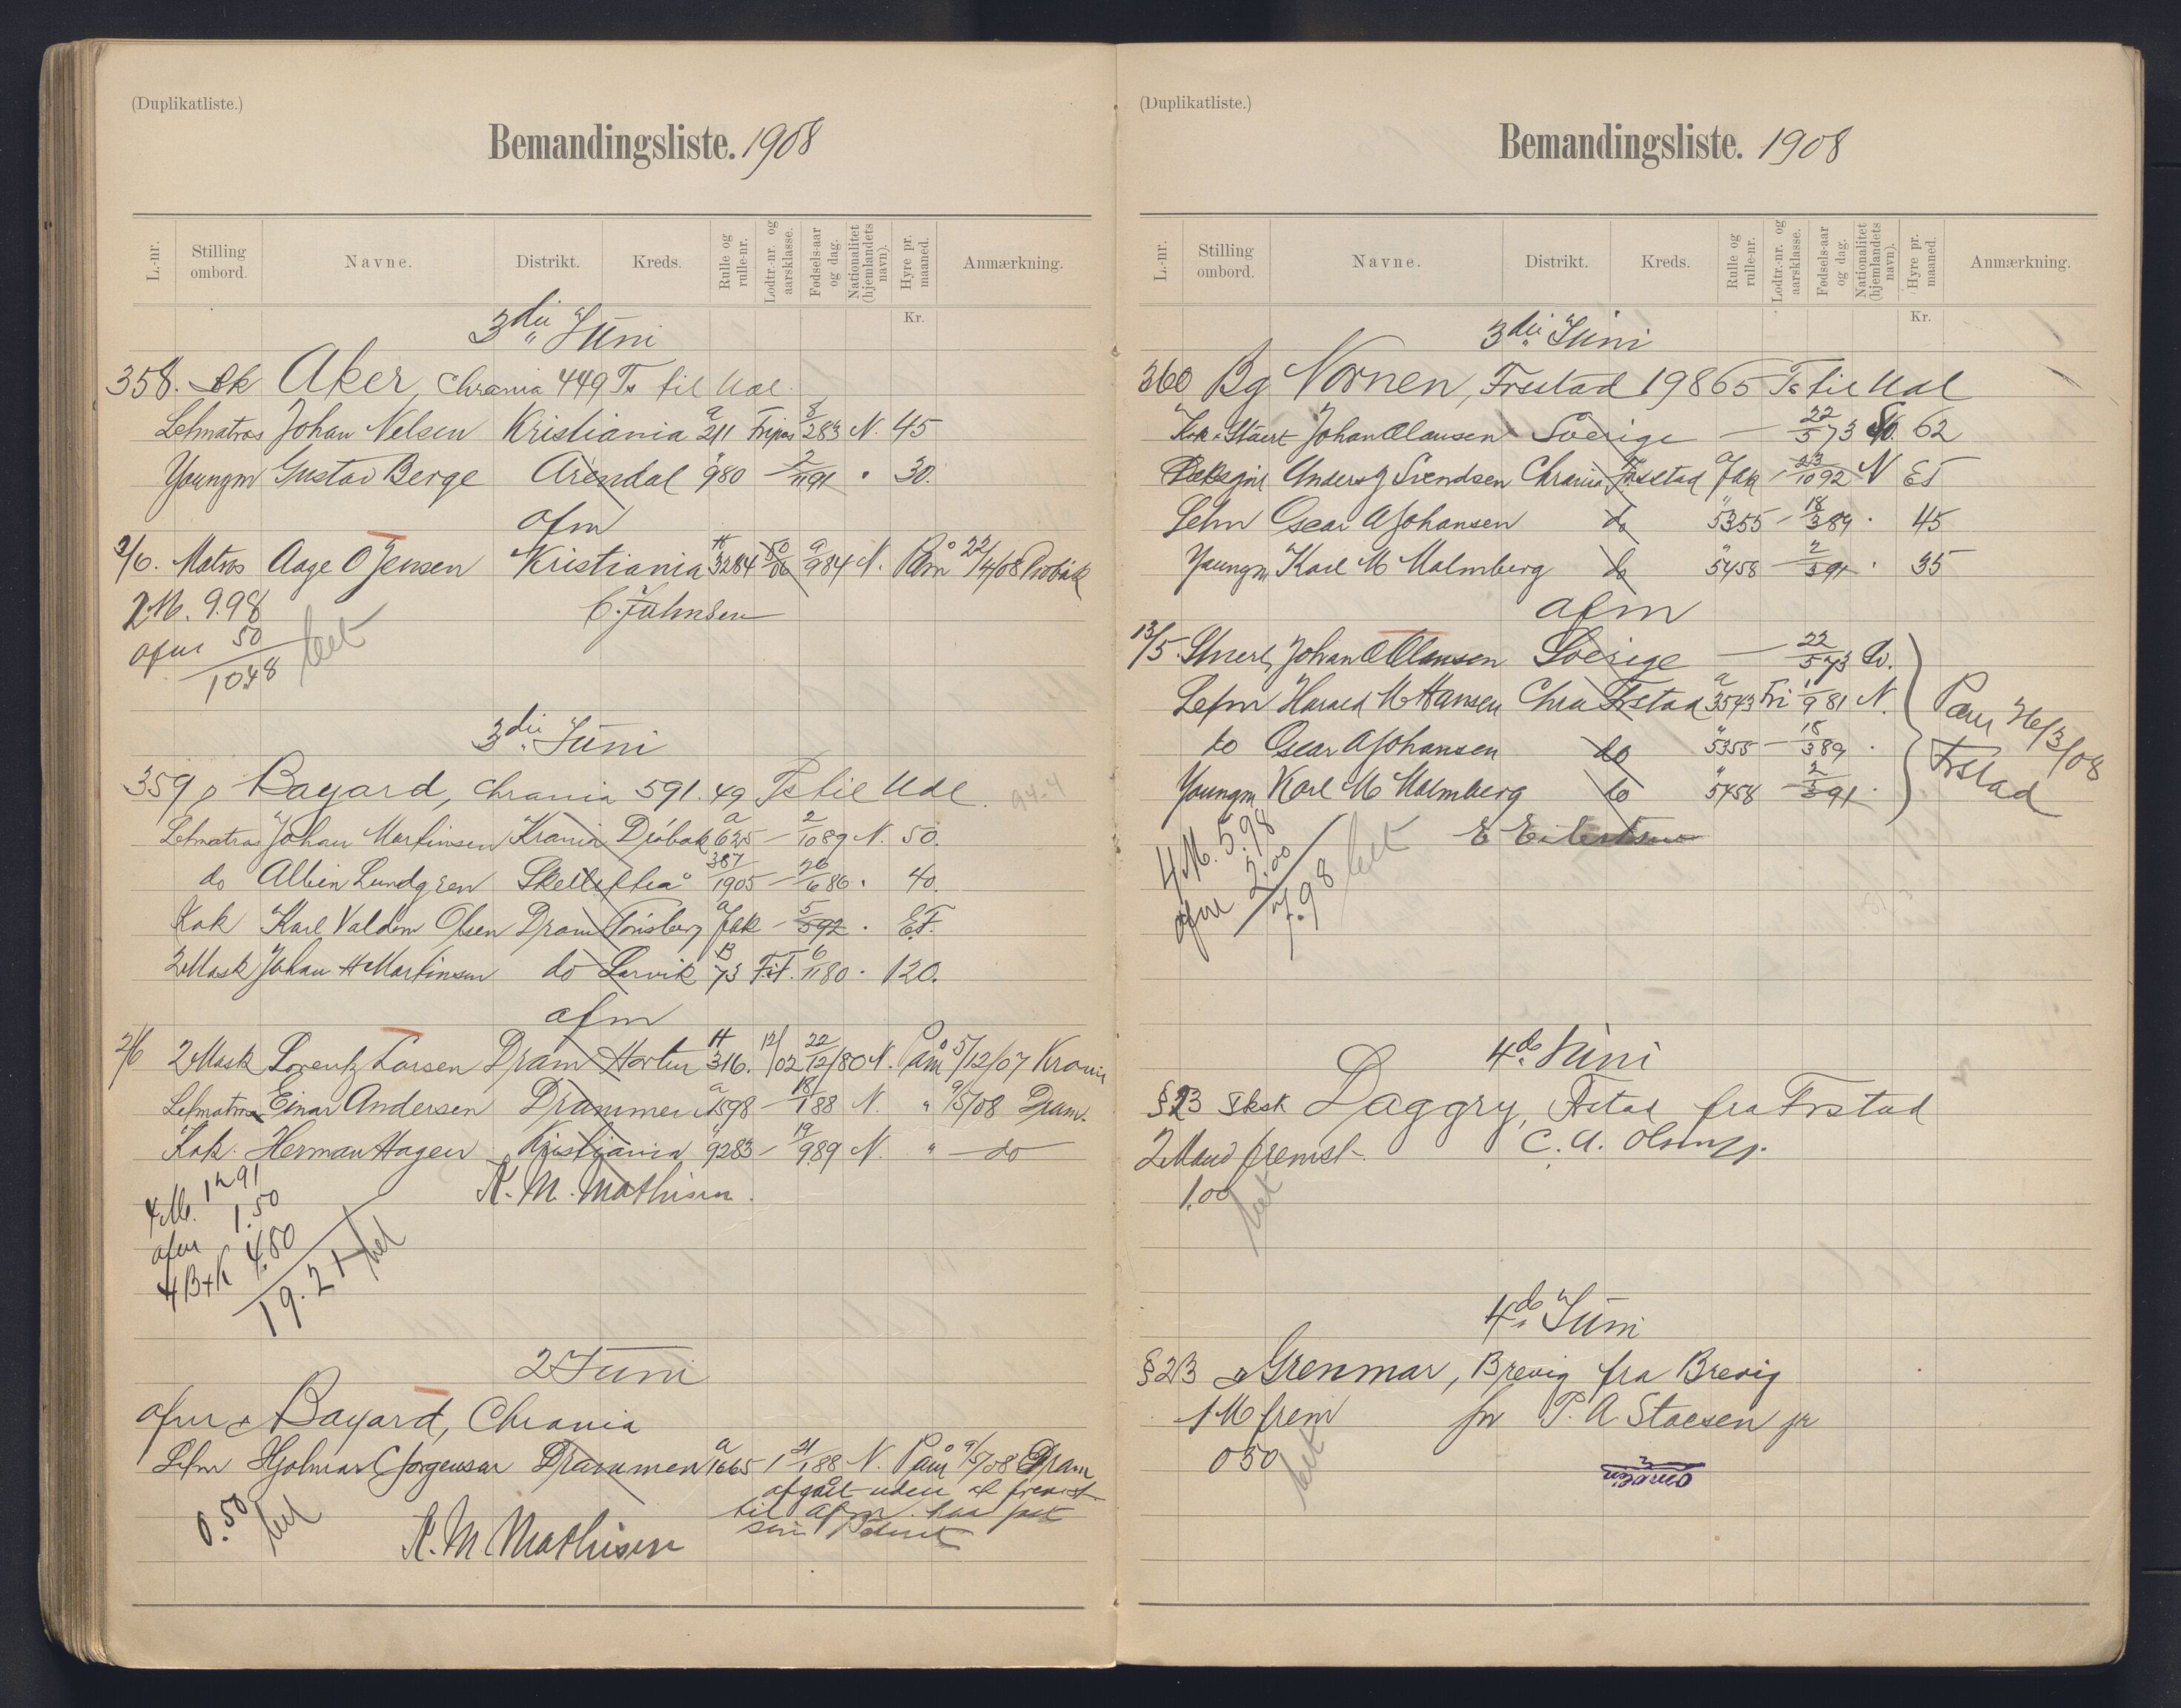 (Duplikatliste.)
Bemandingsliste. 1908
L.-nr.
Stilling ombord.
Navne.
Distrikt.
Kreds.
Rulle og rulle-nr.
Lodtr.-nr. og aarsklasse.
Fødsels-aar og dag.
Nationalitet (hjemlandets navn).
Hyre pr. maaned.
Anmærkning.
Kr.
3die Juni
358. Sk Aker, Chrania 449 Ts til Udl.
Letmatros Johan Nelsen Kristiania a 211 Fripas 8/2 83 N. 45
Youngm Gustav Berge Arendal " 980 - 2/11 91 " 30.
afm
2/6. Matros Aage O Jensen Kristiania H 3284 50/06 9/9 84 N. Påm 22/4/08 Drøbak
2 M. 9.98
C. Johnsen
afm 50
10.48 bet
3die Juni
359 D Bayard, Chrania 591.49 Ts til Udl. 94-4
Letmatros Johan Martinsen Krania Drøbak a 625 - 2/10 89 N. 50.
do Albin Lundgren Skellefteå 387/1905 - 26/6 86 . 40.
Kok Karl Valdem Olsen Dram Tönsberg a Jbk - 5/5 92 . E.F.
2 Mask Johan H Martinsen do Larvik B 73 F.T. 6/11 80 . 120.
afm
2/6 2 Mask Lorentz Larsen Dram Horten H 316. 121/02 22/12/80 N. Påm 5/12/07 Krania
Letmatros Einar Andersen Drammen a 1598 - 18/1 88 N. " 9/5/08 Dram.
Kok. Herman Hagen Kristiania " 9283 - 19/9 89 N. " do
N. M. Mathisen.
4 M. 12.91
afm 1.50
4 B+K 4.80
19.21 bet
2 Juni
afm D Bayard, Chrania
Letm Hjalmar C Jørgensen Drammen a 1665 1 21/1 88 N. Påm 9/5/08 Dram
afgått uden at fremst
til afm.
0.50 bet
N. M. Mathisen
(Duplikatliste.)
Bemandingsliste. 1908
L.-nr.
Stilling ombord.
Navne.
Distrikt.
Kreds.
Rulle og rulle-nr.
Lodtr.-nr. og aarsklasse.
Fødsels-aar og dag.
Nationalitet (hjemlandets navn).
Hyre pr. maaned.
Anmærkning.
Kr.
3die Juni
360 Bg Nornen, Frstad 198 65 Ts til Udl
Kok & Stuert Johan Clausen Sverige - 22/5 73 Sv. 62
Dæksgut Anders J Svendsen Chrania Frstad a Jbk - 23/10 92 N EF
Letm Oscar A Johansen do " 5355 - 18/3 89 . 45
Youngm Karl M Malmberg do " 5458 - 2/3 91 . 35
afm
13/5. Stuert Johan A Clausen Sverige - 22/5 73 Sv.
Letm Harald M Hansen Chra Frstad a 3543 Fri 1/9 81 N.
do Oscar A Johansen do " 5355 - 18/3 89 .
Youngm Karl M Malmberg do " 5458 - 2/3 91 .
Påm 26/3/08
Frstad
E Eilertsen
4 M. 5.98
afm 2.00
7.98 bet
4de Juni
§ 23 Sksk Daggry, Frstad fra Frstad
2 Mand fremst. C. A. Olsen
1.00 bet
4de Juni
§ 23 D Grenmar, Brevig fra Brevig
1 M frem for P. A Staesen jr
0.50 bet